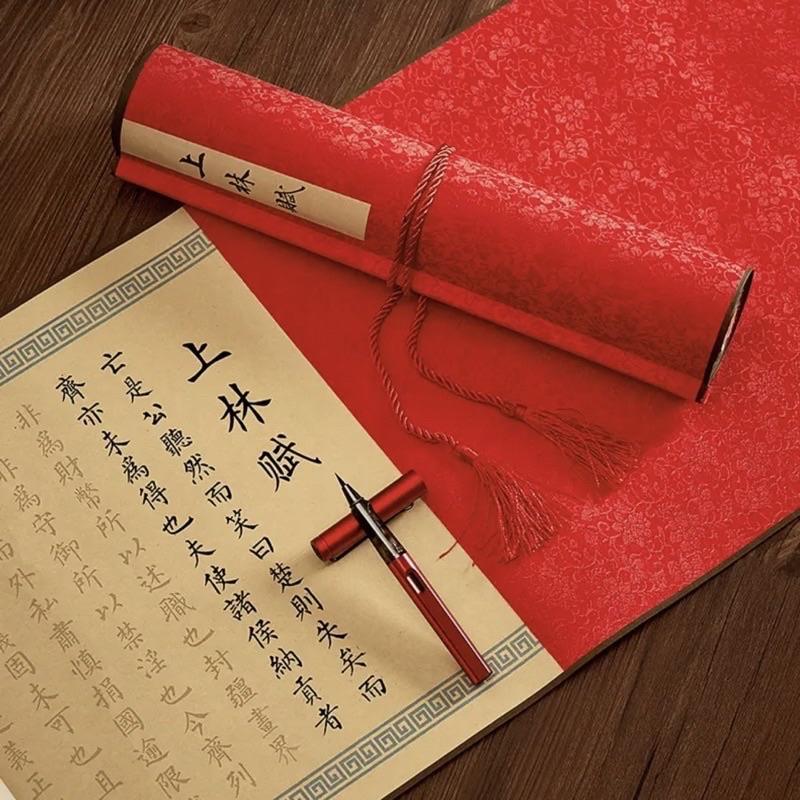 上林賦
上林赋
亡是公聽然而笑曰楚則失矣而
齊亦未為得也夫使諸侯納貢者
非為財幣所以述職也封疆畫界
非為守御所以禁淫也今齊列
外私肅慎捐國逾限
固未可也且
義正